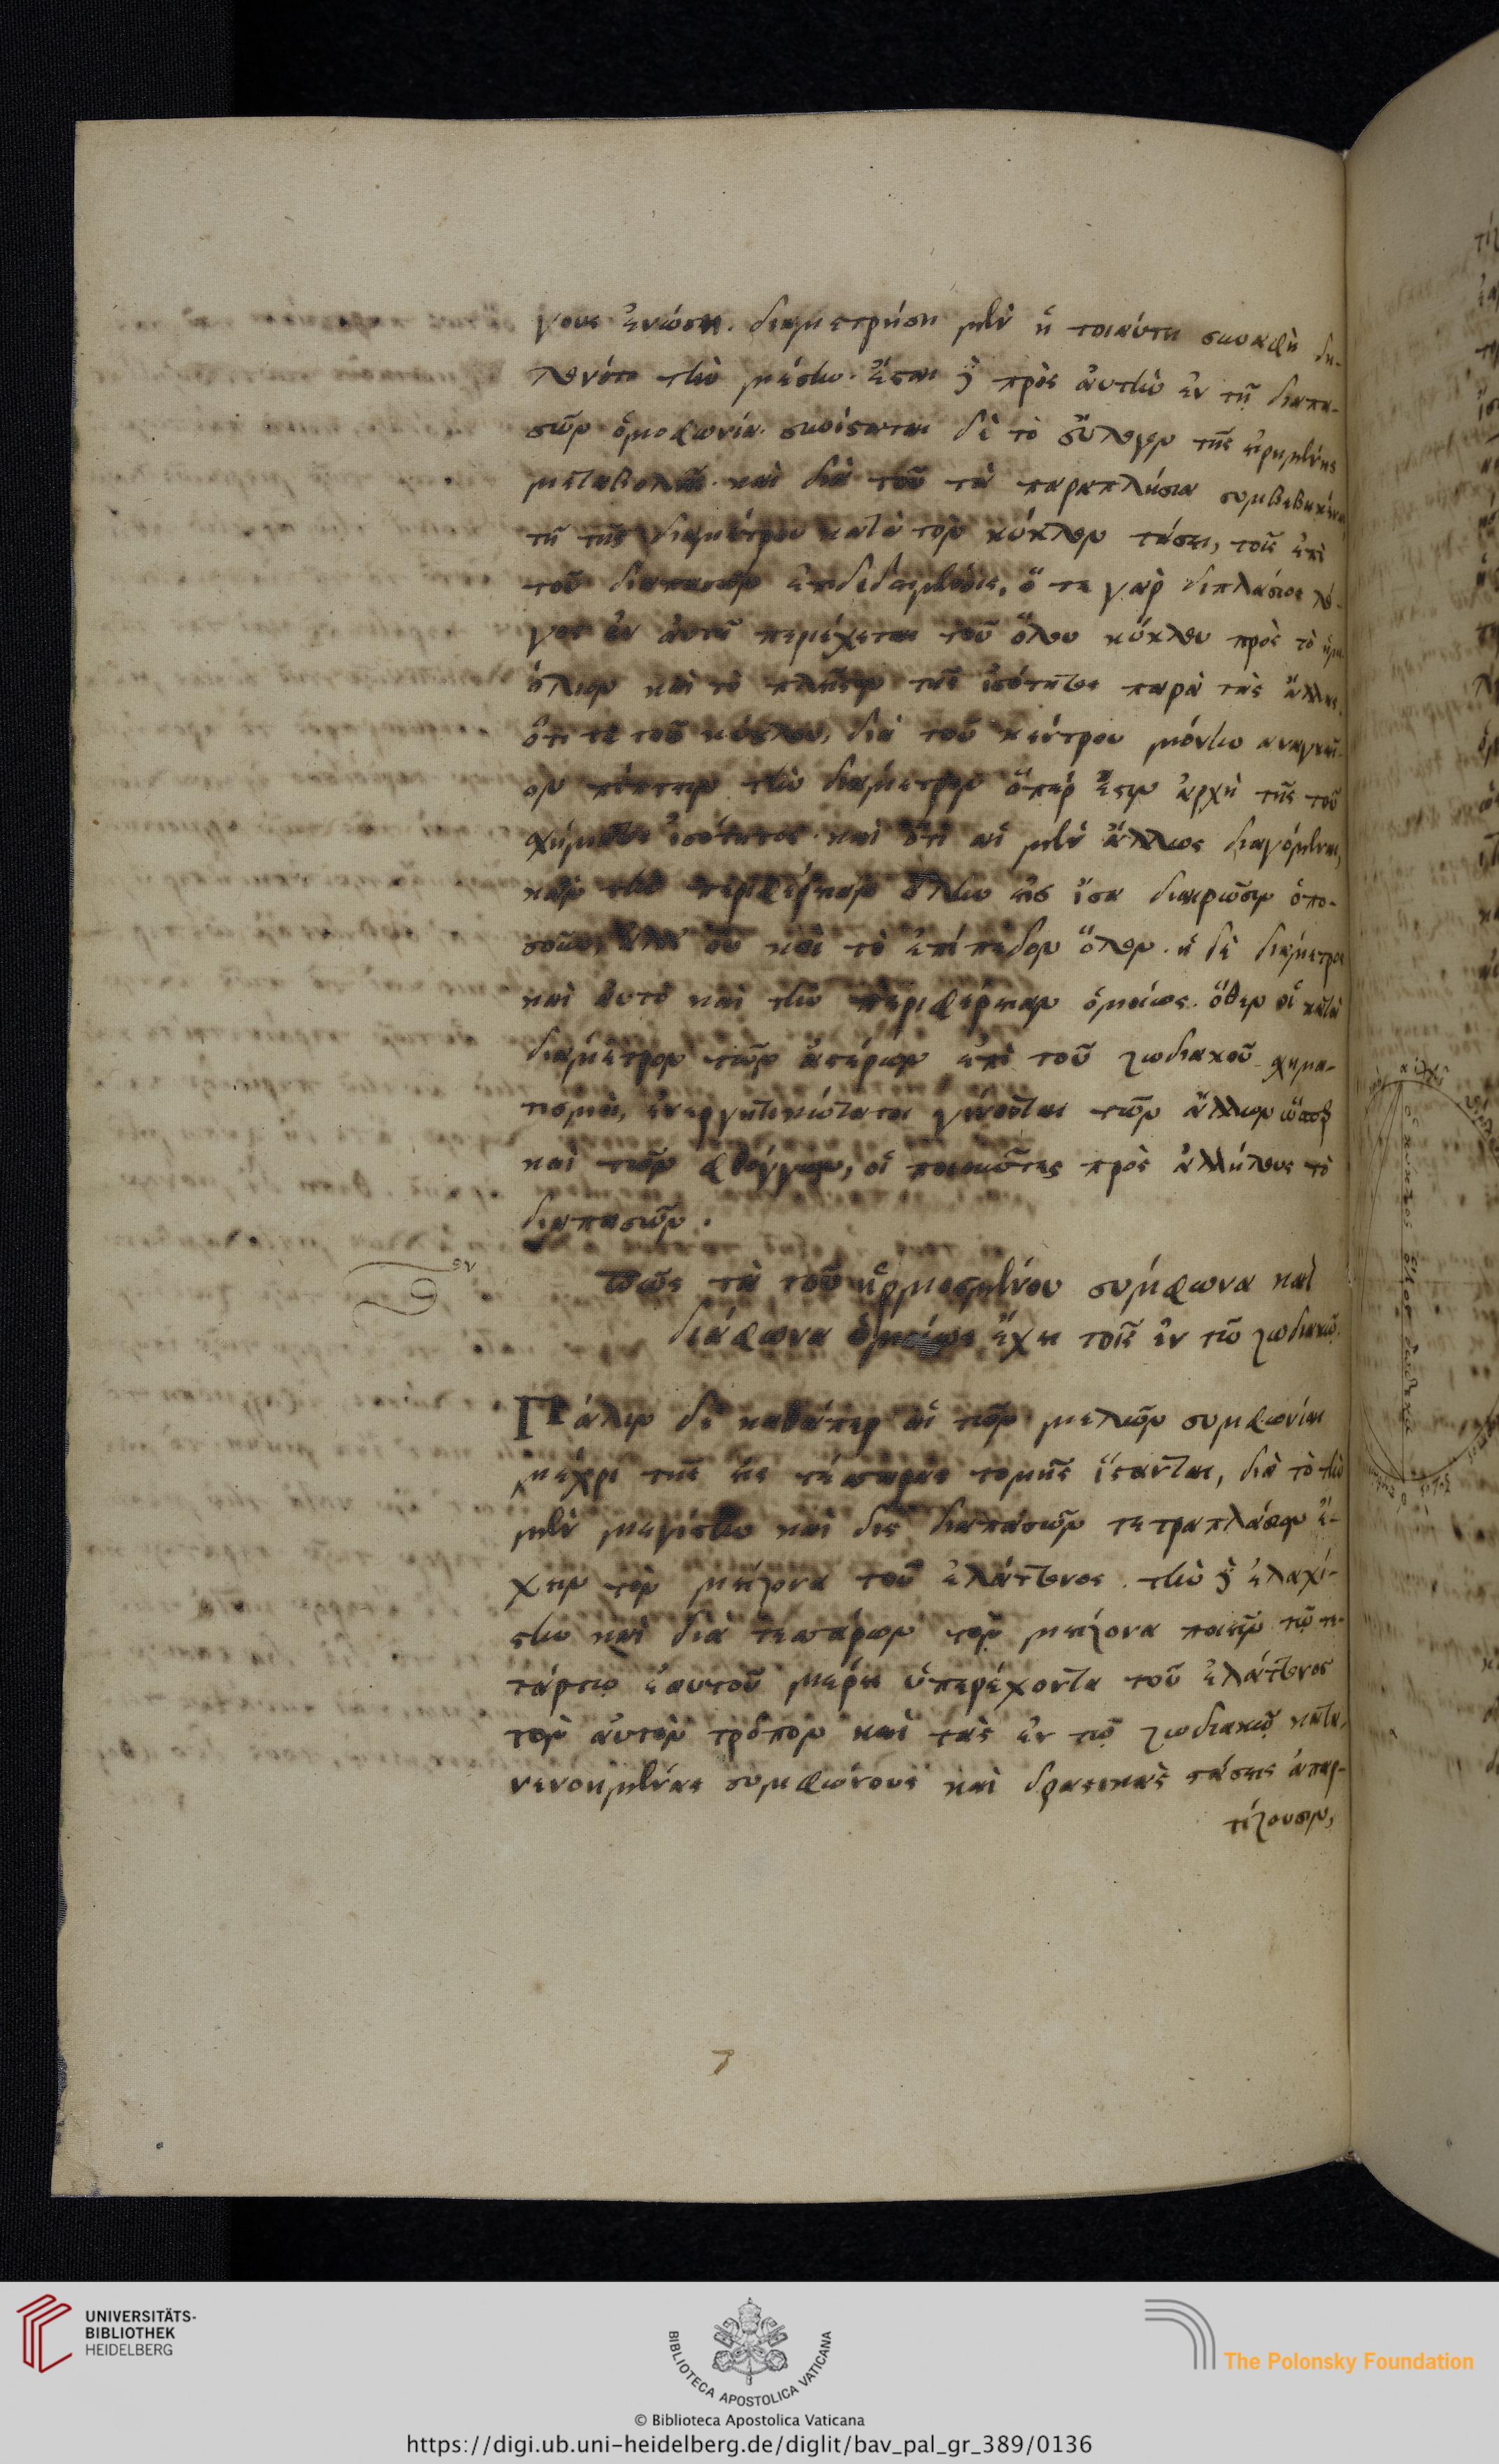 γους ἑνώσει. διαμετρήσει μὲν ἡ τοιαύτη συναφὴ δη-
λονότι τὴν μέσην. ἔσται δὲ πρὸς ἀυτὴν ἐν τῇ διαπα-
σῶν ὁμοφωνία. συνίσταται δὲ τὸ ἔυλογον τῆς εἰρημένης
μεταβολῆς. καὶ διὰ τοῦ τὰ παραπλήσια συμβεβηκέναι
τῇ τῆς διαμέτρου κατὰ τὸν κύκλον στάσει, τοῖς ἐπὶ
τοῦ διαπασῶν ἐπιδεδειγμένοις, ὅ τε γὰρ διπλάσιος λό-
γος ἐν ἀυτῇ περιέχεται τοῦ ὅλου κύκλου πρὸς τὸ ἡμι-
κύκλιον καὶ τὸ πλῆρες τῆς ἰσότητος παρὰ τὰς ἄλλας.
ὅτι τε τοῦ κύκλου, διὰ τοῦ κέντρου μόνην αναγκαῖ-
ον πίπτειν τὴν διάμετρον ὅπερ ἐστὶν ἀρχὴ τῆς τοῦ
χήματος ἰσότητος. καὶ ὅτι αἱ μὲν ἄλλως διαγόμεναι,
κἂν τὴν περιφέρειαν ὅλην εἰς ἴσα διαιρῶσιν ὁπο-
σαοῦν, ἀλλ' οὐ καὶ τὸ ἐπίπεδον ὅλον. ἡ δὲ διάμετρος
καὶ ἀυτὸ καὶ τὴν περιφέρειαν ὁμοίως. ὅθεν οἱ κατὰ
διάμετρον τῶν ἀστέρων ἐπὶ τοῦ ζωδιακοῦ χημα-
τισμοὶ, ἐνεργητικώτατοι γίνονται τῶν ἄλλων ὥσπερ
καὶ τῶν φθόγγων, οἱ ποιοῦντες πρὸς ἀλλήλους τὸ
διαπασῶν.
πῶς τὰ τοῦ ἡρμοσμένου σύμφωνα καὶ
διάφωνα ὁμοίως ἔχει τοῖς ἐν τῷ ζωδιακῷ.
Πάλιν δὲ καθάπερ αἱ τῶν μελῶν συμφωνίαι
μέχρι τῆς εἰς τέσσαρας τομῆς ἵστανται, διὰ τὸ τὴν
μὲν μεγίστην καὶ δὶς διαπασῶν τετραπλάσιον ἔ-
χειν τὸν μείζονα τοῦ ἐλάττονος. τὴν δὲ ἐλαχί-
στην καὶ διὰ τεσσάρων τὸν μείζονα ποιεῖν τῷ τε-
τάρτῳ ἑαυτοῦ μέρει ὑπερέχοντα τοῦ ἐλάττονος
τὸν ἀυτὸν τρόπον καὶ τὰς ἐν τῷ ζωδιακῷ κατα-
νενοημένας συμφώνους καὶ δραστικὰς στάσεις ἀπαρ-
τίζουσιν,
UNIVERSITÄTS-
BIBLIOTHEK
HEIDELBERG
BIBLIOTECA APOSTOLICA VATICANA
The Polonsky Foundation
© Biblioteca Apostolica Vaticana
https://digi.ub.uni-heidelberg.de/diglit/bav_pal_gr_389/0136